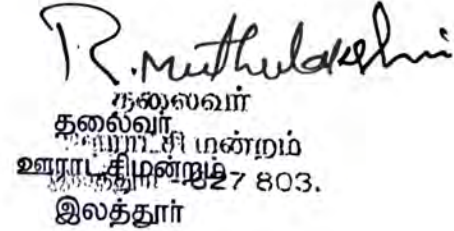 R. Muthulakshmi
தலைவர்
தலைவர்
மன்றம்
ஊராட்சிமன்றம்
627 803.
இலத்தூர்